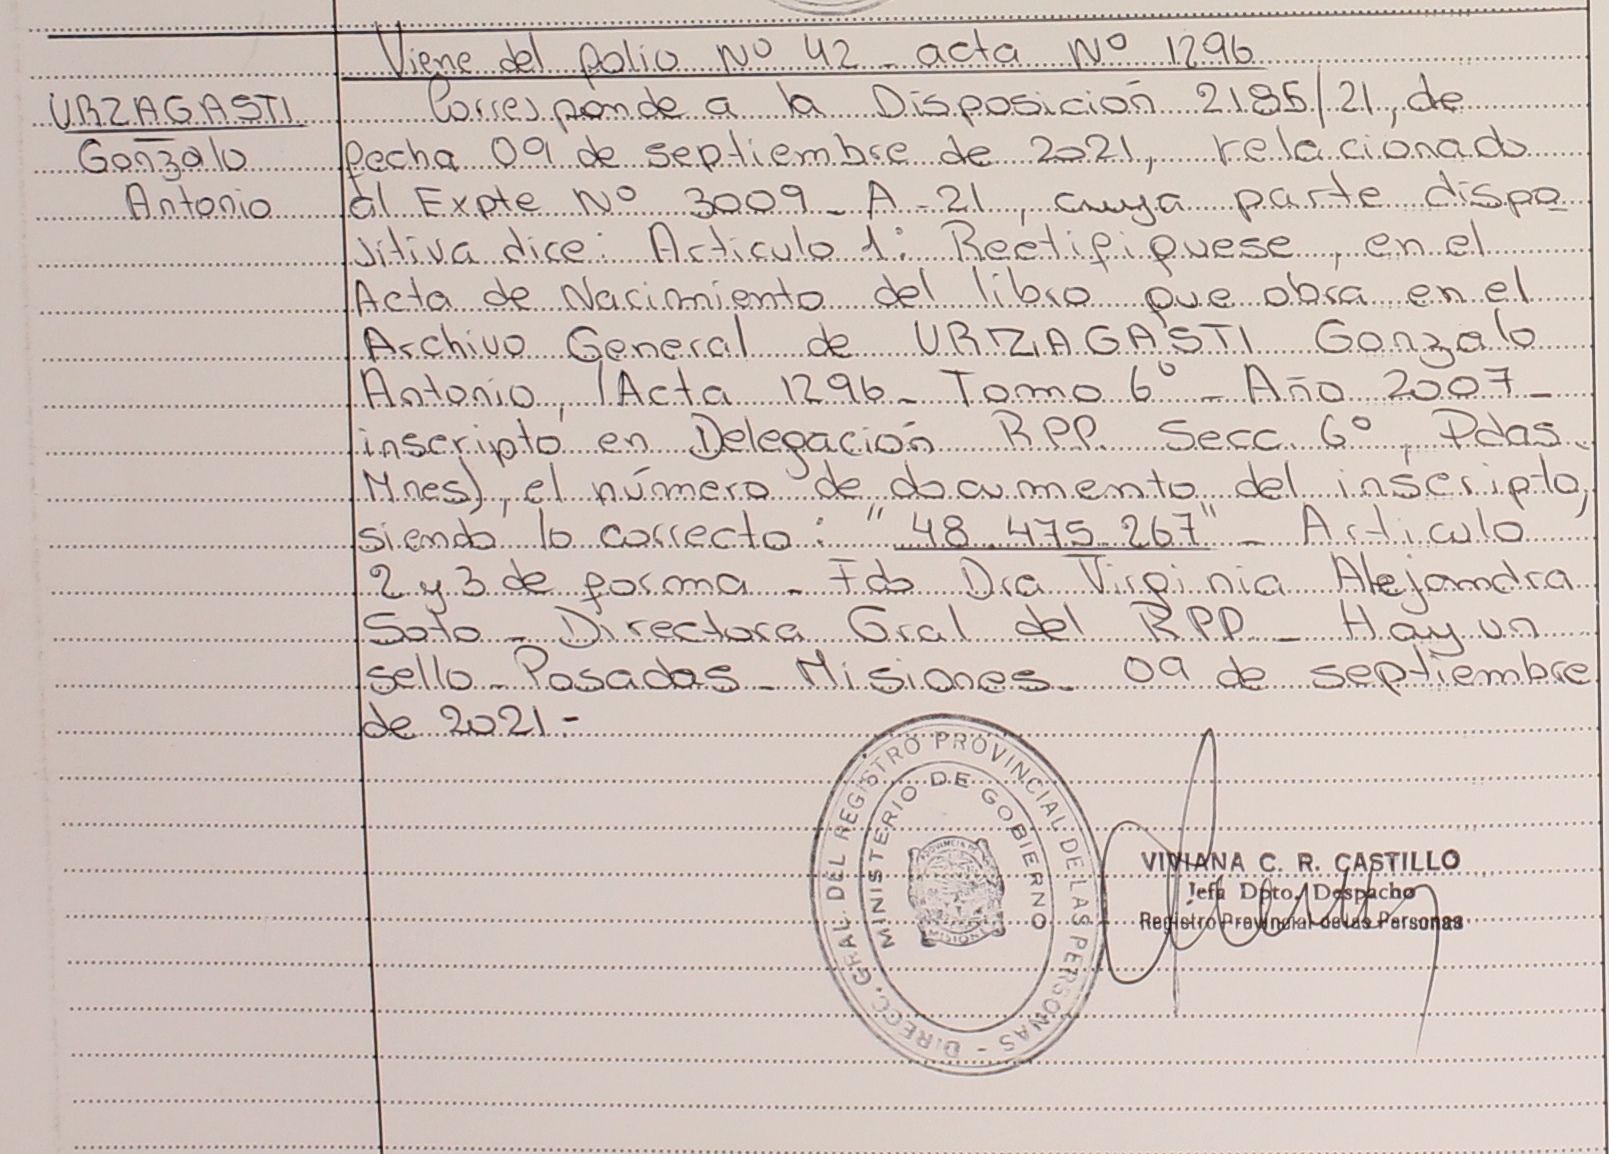 Viene del folio Nº 42 - acta Nº 1296
URZAGASTI
Gonzalo
Antonio
Corresponde a la Disposición 2185/21, de
fecha 09 de septiembre de 2021, relacionado
al Expte Nº 3009 - A - 21, cuya parte dispo
sitiva dice: Articulo 1: Rectifiquese, en el
Acta de Nacimiento del libro que obra en el
Archivo General de URZAGASTI Gonzalo
Antonio, (Acta 1296 - Tomo 6º - Año 2007 -
inscripto en Delegación RPP. Secc. 6º, Pdas.
Mnes), el número de documento del inscripto,
siendo lo correcto: "48.475.267" - Articulo
2 y 3 de forma - Fdo Dra Virginia Alejandra
Soto - Directora Gral del RPP - Hay un
sello - Posadas - Misiones - 09 de septiembre
de 2021 -
DIRECC. GRAL. DEL REGISTRO PROVINCIAL DE LAS PERSONAS -
MINISTERIO DE GOBIERNO
PROVINCIA DE
MISIONES
VIVIANA C. R. CASTILLO
Jefa Dpto. Despacho
Registro Provincial de las Personas